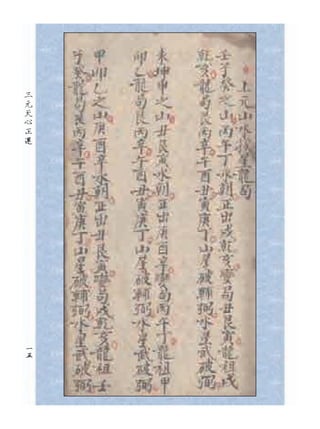 上元山水挨星龍局
壬子癸之山丙午丁水朝正出戌乾亥變局丑艮寅龍祖戌
乾亥龍局艮丙辛午酉丑寅庚丁山星破輔弼水星武破弼
未坤申之山丑艮寅水朝正出庚酉辛變局丙午丁龍祖甲
卯乙龍局艮丙辛午酉丑寅庚丁山星破輔弼水星武破弼
甲卯乙之山庚酉辛水朝正出丑艮寅變局戌乾亥龍祖壬
子癸龍局艮丙辛午酉丑寅庚丁山星破輔弼水星武破弼
三元天心正運
一五